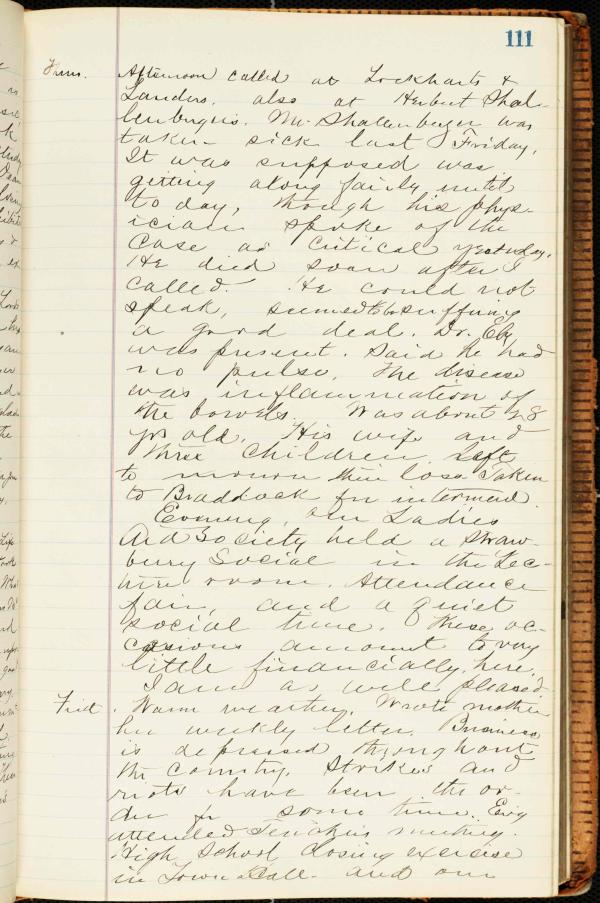 111
Thurs. Afternoon called at Lockharts &
Landers, also at Herbert Shal-
lenbergers. Mr. Shallenberger was
taken sick last Friday.
It was supposed was
getting along fairly until
to day, though his phys-
ician spoke of the
case as critical yesterday.
He died soon after I
called. He could not
speak, seemed to be suffering
a good deal. Dr. Eby
was present. Said he had
no pulse. The disease
was inflammation of
the bowels. Was about 28
yrs old. His wife and
three children left
to mourn their loss. Taken
to Braddock for interment.
Evening, our Ladies
Aid Society held a straw-
berry Social in the Lec-
ture room. Attendance
fair, and a quiet
social time. These oc-
casions amount to very
little financially, here.
I am as well pleased.
Frid. Warm weather. Wrote mother
her weekly letter. Business
is depressed throughout
the country. Strikes and
riots have been the or-
der for some time. Evg
attended Teachers meeting.
High School closing exercise
in Town Hall and our